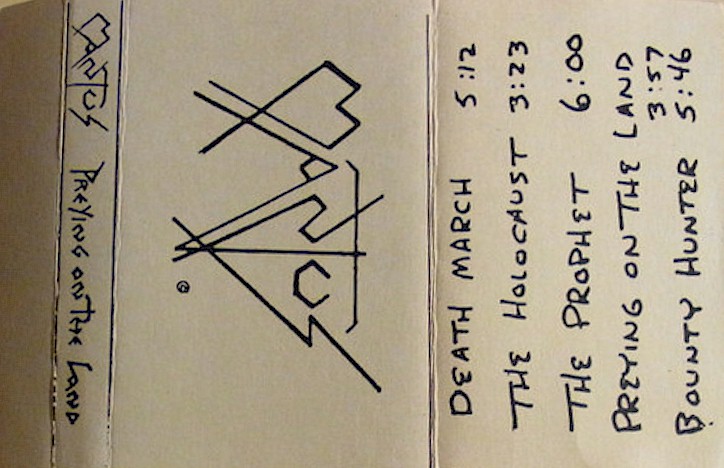 MANTUS PREYING ON THE LAND
MANTUS
©
DEATH MARCH 5:12
THE HOLOCAUST 3:23
THE PROPHET 6:00
PREYING ON THE LAND
3:57
BOUNTY HUNTER 5:46